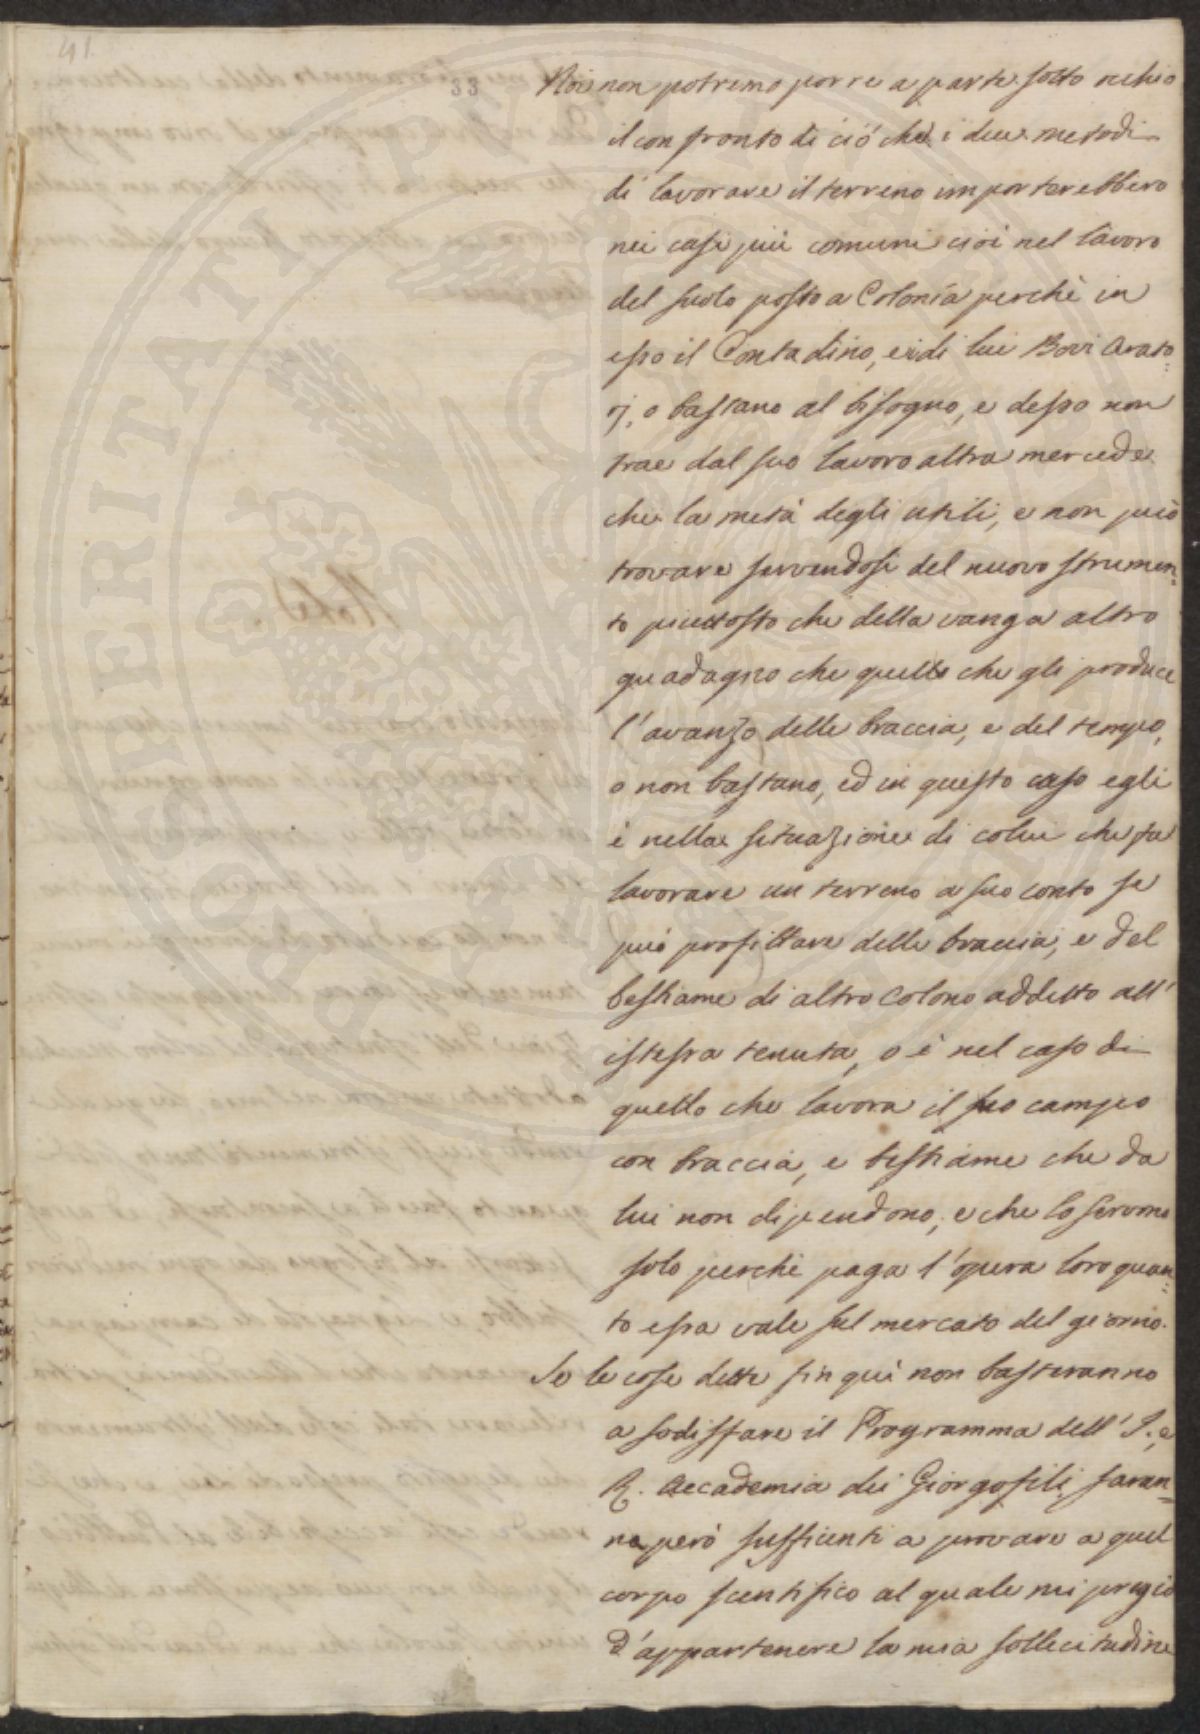 41
33
Noi non potremo porre a parte sotto occhio
il confronto di ciò che i due metodi
di lavorare il terreno importerebbero
nei casi più comuni cioè nel lavoro
del suolo posto a Colonìa perchè in
esso il Contadino, e i di lui Bovi Arato=
rj, o bastano al bisogno, e desso non
trae dal suo lavoro altra mercede
che la metà degli utili, e non può
trovare servendosi del nuovo strumen=
to piuttosto che della vanga altro
guadagno che quello che gli produce
l'avanzo delle braccia, e del tempo,
o non bastano, ed in questo caso egli
è nella situazione di colui che fa
lavorare un terreno a suo conto se
può profittare delle braccia, e del
bestiame di altro Colono addetto all'
istessa tenuta, o è nel caso di
quello che lavora il suo campo
con braccia, e bestiame che da
lui non dipendono, e che lo servono
solo perchè paga l'opera loro quan=
to essa vale sul mercato del giorno.
Se le cose dette fin quì non basteranno
a sodisfare il Programma dell' I. e
R. Accademia dei Giorgofili saran=
no però sufficienti a provare a quel
corpo scentifico al quale mi pregio
d'appartenere la mia sollecitudine
PROSPERITATI PUBLICAE